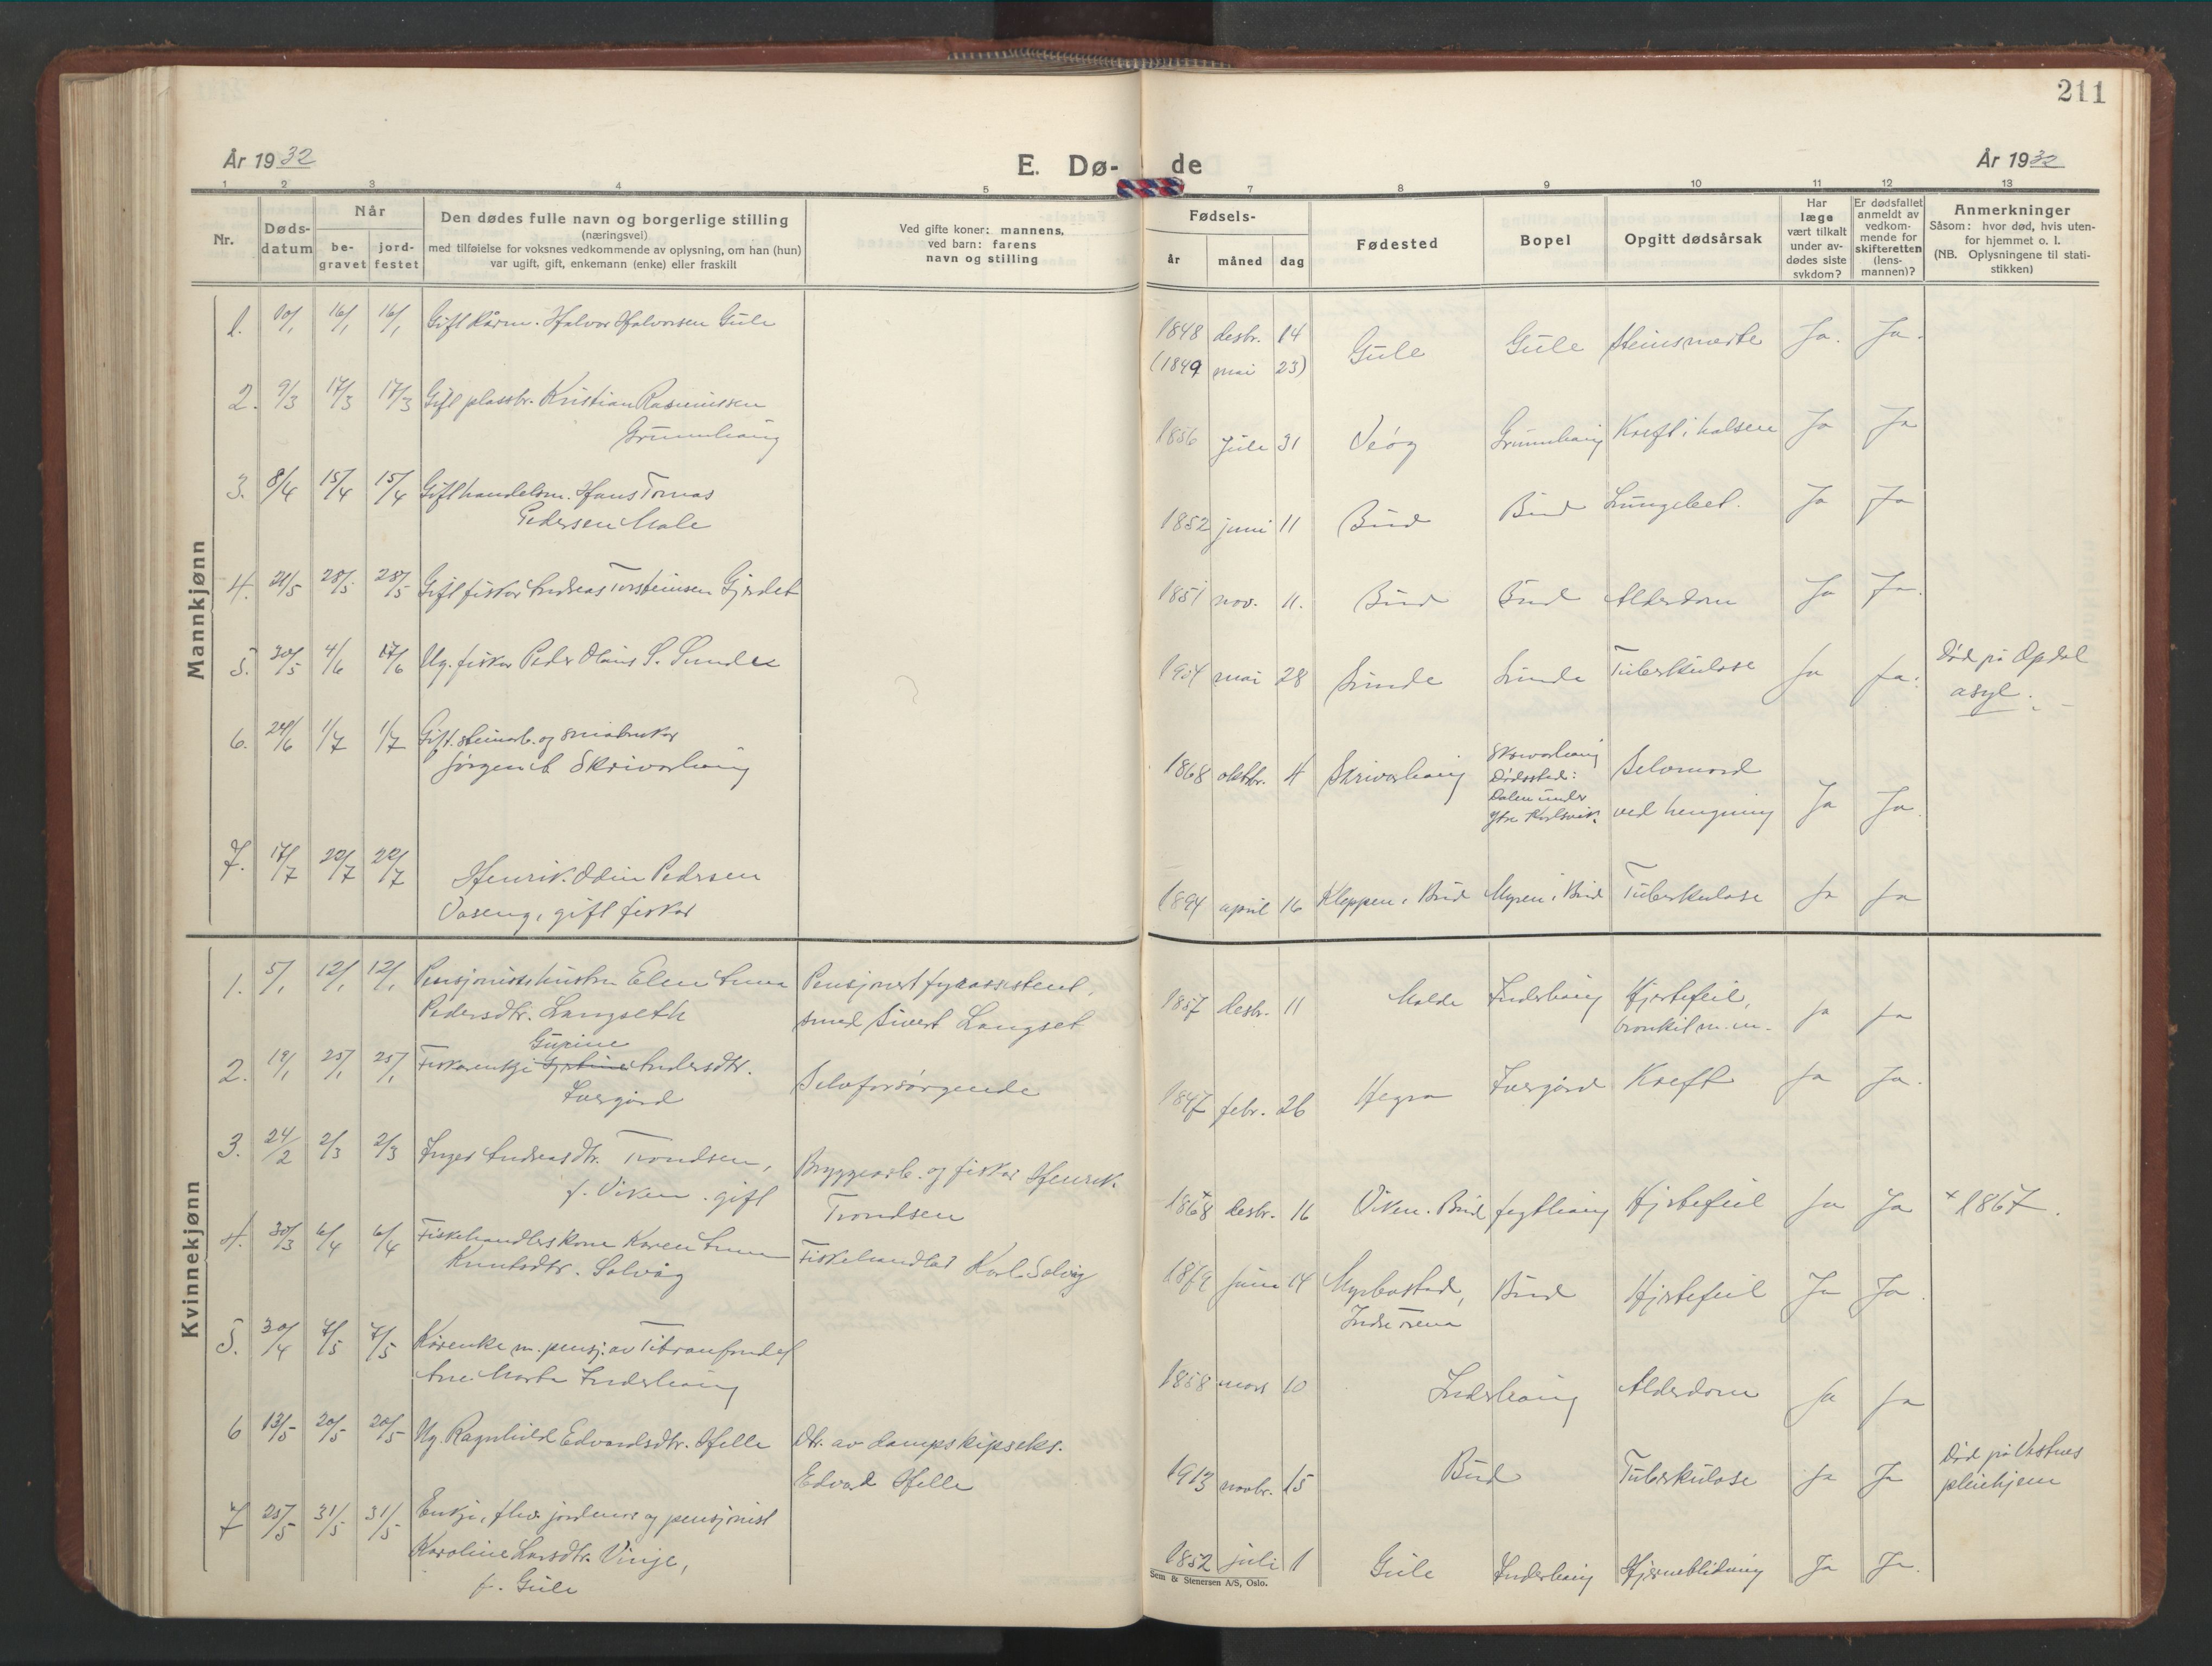 211
År 1932
E. Dø- de
År 1932
1 2 3 4 5 7 8 9 10 11 12 13
Nr.
Døds-
datum
Når
be-
gravet
jord-
festet
Den dødes fulle navn og borgerlige stilling
(næringsvei)
med tilføielse for voksnes vedkommende av oplysning, om han (hun)
var ugift, gift, enkemann (enke) eller fraskilt
Ved gifte koner: mannens,
ved barn: farens
navn og stilling
Fødsels-
år måned dag
Fødested
Bopel
Opgitt dødsårsak
Har
læge
vært tilkalt
under av-
dødes siste
sykdom?
Er dødsfallet
anmeldt av
vedkom-
mende for
skifteretten
(lens-
mannen)?
Anmerkninger
Såsom: hvor død, hvis uten-
for hjemmet o. l.
(NB. Oplysningene til stati-
stikken)
Mannkjønn
1. 10/1 16/1 16/1 Gift kårm. Halvor Halvorsen Gule
1848 desbr. 14
(1849 mai 23)
Gule Gule Ja. Ja.
2. 9/3 17/3 17/3 Gift plassbr. Kristian Rasmussen
Grunnhaug
1856 Juli 31 Veøy Grunnhaug Kreft i halsen Ja Ja
3. 8/4 15/4 15/4 Gift handelsm. Hans Tomas
Pedersen Male
1852 juni 11 Bud Bud Lungebet. Ja Ja
4. 21/5 28/5 28/5 Gift fisker Andreas Torsteinsen Gjerdet
1851 nov. 11. Bud Bud Alderdom Ja Ja.
5. 30/5 4/6 17/6 Ug. fisker Peder Olaus S. Sunde
1904 mai 28 Sunde Sunde Tuberkulose Ja Ja.
Død på Opdøl
asyl.
6. 24/6 1/7 1/7 Gift. steinarb. og småbruker
Jørgen A Skriverhaug
1868 oktbr. 4 Skriverhaug
Skriverhaug
Dødssted:
Dalen under
Ytre
Selvmord
ved hengning Ja Ja.
7. 17/7 22/7 22/7 Henrik Odin Pedersen
Vaseng, gift fisker
1894 april 16 Kleppen i Bud Myren i Bud Tuberkulose Ja Ja
Kvinnekjønn
1. 5/1 12/1 12/1 Pensjonistshustru Elen Anna
Pedersdtr. Langseth
Pensjonert fyrassistent,
smed Sivert Langset
1857 desbr. 11 Molde Inderhaug Hjertefeil,
bronkit m. m. Ja Ja
2. 19/1 25/1 25/1 Fiskerenkje Gurine Andersdtr.
Ivergård
Selvforsørgende
1847 febr. 26 Hegra Ivergård Kreft Ja Ja.
3. 24/2 2/3 2/3 Inger Andreasdtr. Trondsen,
f. Viken. gift
Bryggearb. og fisker Henrik
Trondsen
1868 × desbr. 16 Viken. Bud Hjertefeil Ja Ja × 1867.
4. 30/3 6/4 6/4 Fiskehandlerskone Karen Anna
Knutsdtr. Solvåg
Fiskehandler Karl Solvåg
1879 Juni 14 Myrbostad,
Indre Fræna
Bud Hjertefeil Ja Ja.
5. 30/4 7/5 7/5 Kårenke m. pensj. av Titranfondet
Ane Marta Inderhaug
1858 mars 10 Inderhaug Alderdom Ja Ja
6 13/5 20/5 20/5 Ug. Ragnhild Edvardsdtr. Helle
Dtr. av dampskipseks.
Edvard Helle
1913 novbr. 15 Bud Tuberkulose Ja Ja
Død på Vestnes
pleiehjem
7 25/5 31/5 31/5 Enkje, fhv. jordmor og pensjonist
Karoline Larsdtr. Vinje,
f. Gule
1852 juli 1 Gule Inderhaug Hjerneblødning Ja Ja.
Sem & Stenersen A/S, Oslo.